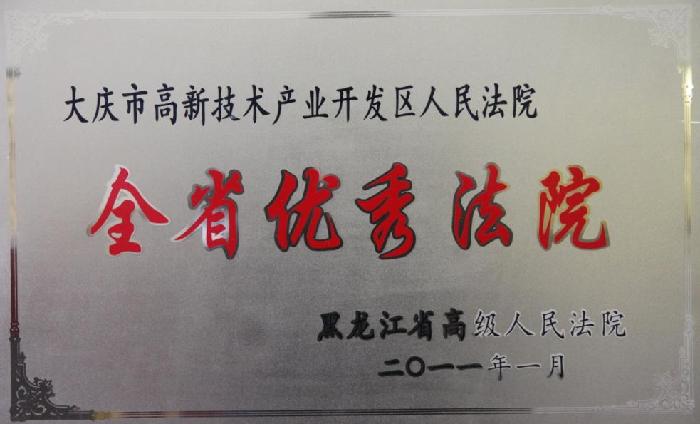 大庆市高新技术产业开发区人民法院
全省优秀法院
黑龙江省高级人民法院
二〇一一年一月